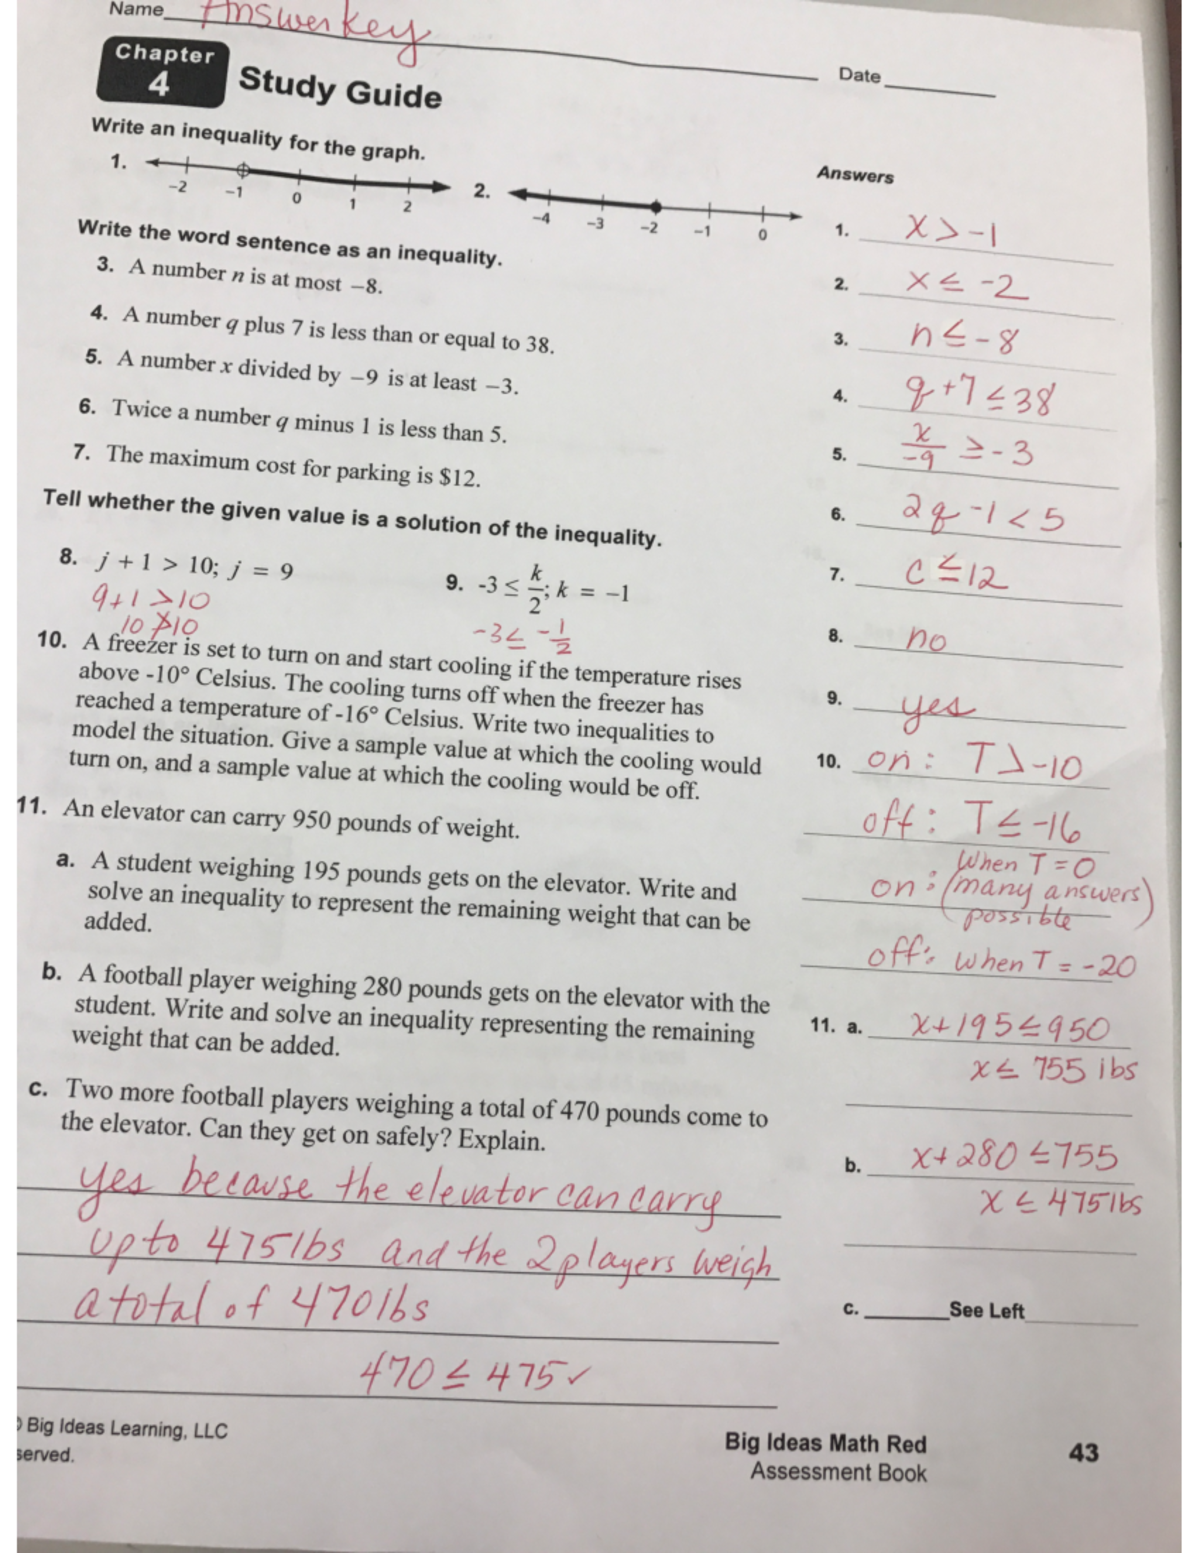 Name Answer key
Date
Chapter 4 Study Guide
Write an inequality for the graph.
1. -2 -1 0 1 2
2. -4 -3 -2 -1 0
Write the word sentence as an inequality.
3. A number n is at most −8.
4. A number q plus 7 is less than or equal to 38.
5. A number x divided by −9 is at least −3.
6. Twice a number q minus 1 is less than 5.
7. The maximum cost for parking is $12.
Tell whether the given value is a solution of the inequality.
8. j + 1 > 10; j = 9
9+1 >10
10 ≯10
9. -3 ≤ k/2; k = −1
-3≤ -1/2
10. A freezer is set to turn on and start cooling if the temperature rises
above -10° Celsius. The cooling turns off when the freezer has
reached a temperature of -16° Celsius. Write two inequalities to
model the situation. Give a sample value at which the cooling would
turn on, and a sample value at which the cooling would be off.
11. An elevator can carry 950 pounds of weight.
a. A student weighing 195 pounds gets on the elevator. Write and
solve an inequality to represent the remaining weight that can be
added.
b. A football player weighing 280 pounds gets on the elevator with the
student. Write and solve an inequality representing the remaining
weight that can be added.
c. Two more football players weighing a total of 470 pounds come to
the elevator. Can they get on safely? Explain.
yes because the elevator can carry
up to 475lbs and the 2 players weigh
a total of 470lbs
470 ≤ 475✓
Answers
1. x > -1
2. x ≤ -2
3. n ≤ -8
4. q +7 ≤ 38
5. x/-9 ≥ -3
6. 2q -1 < 5
7. c ≤ 12
8. no
9. yes
10. on: T > -10
off: T ≤ -16
When T = 0
on: (many answers)
possible
off: when T = -20
11. a. x+195 ≤ 950
x ≤ 755 lbs
b. x+280 ≤ 755
x ≤ 475lbs
c. See Left
Big Ideas Learning, LLC
served.
Big Ideas Math Red
Assessment Book
43